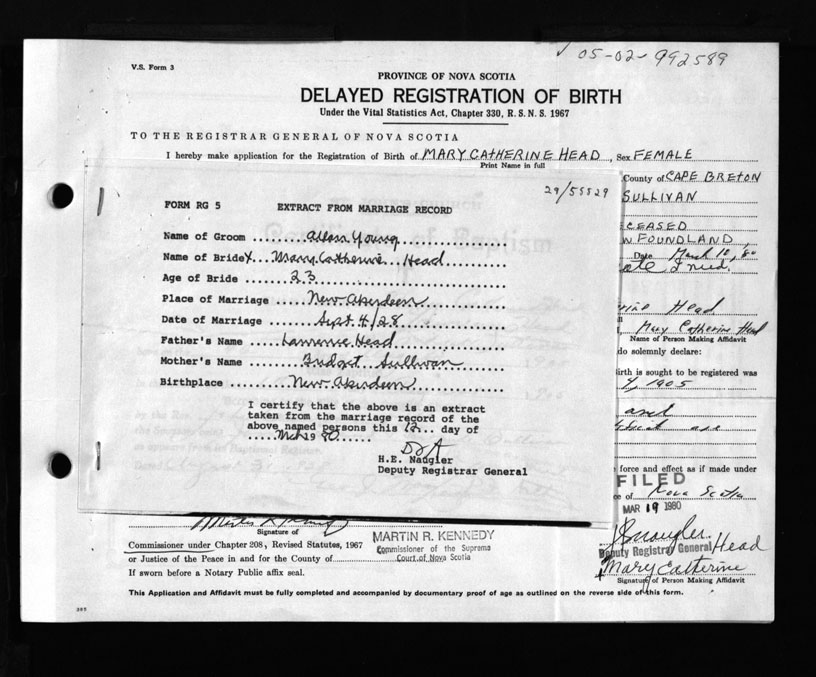 05-02-992589
V.S. Form 3
PROVINCE OF NOVA SCOTIA
DELAYED REGISTRATION OF BIRTH
Under the Vital Statistics Act, Chapter 330, R.S.N.S. 1967
TO THE REGISTRAR GENERAL OF NOVA SCOTIA
I hereby make application for the Registration of Birth of MARY CATHERINE HEAD, Sex FEMALE
Print Name in full
County of CAPE BRETON
SULLIVAN
CEASED
FOUNDLAND,
Date March 10, 80
29/55529
FORM RG 5 EXTRACT FROM MARRIAGE RECORD
Name of Groom ........Allan Young
Name of Bride ..Mary Catherine Head
Age of Bride .....23
Place of Marriage ...New Aberdeen
Date of Marriage ....Sept 4/28
Father's Name ....Lawrence Head
Mother's Name .....Bridget Sullivan
Birthplace ......New Aberdeen
I certify that the above is an extract
taken from the marriage record of the
above named persons this 12... day of
.....Mch 1980......
H.E. Naugler
Deputy Registrar General
Head
Mary Catherine Head
Name of Person Making Affidavit
do solemnly declare:
irth is sought to be registered was
4, 1905
and
force and effect as if made under
FILED
of Nova Scotia
MAR 19 1980
Naugler
Deputy Registrar General
Head
Mary Catherine
Signature of Person Making Affidavit
Signature of
Commissioner under Chapter 208, Revised Statutes, 1967
or Justice of the Peace in and for the County of
If sworn before a Notary Public affix seal.
MARTIN R. KENNEDY
Commissioner of the Supreme
Court of Nova Scotia
This Application and Affidavit must be fully completed and accompanied by documentary proof of age as outlined on the reverse side of this form.